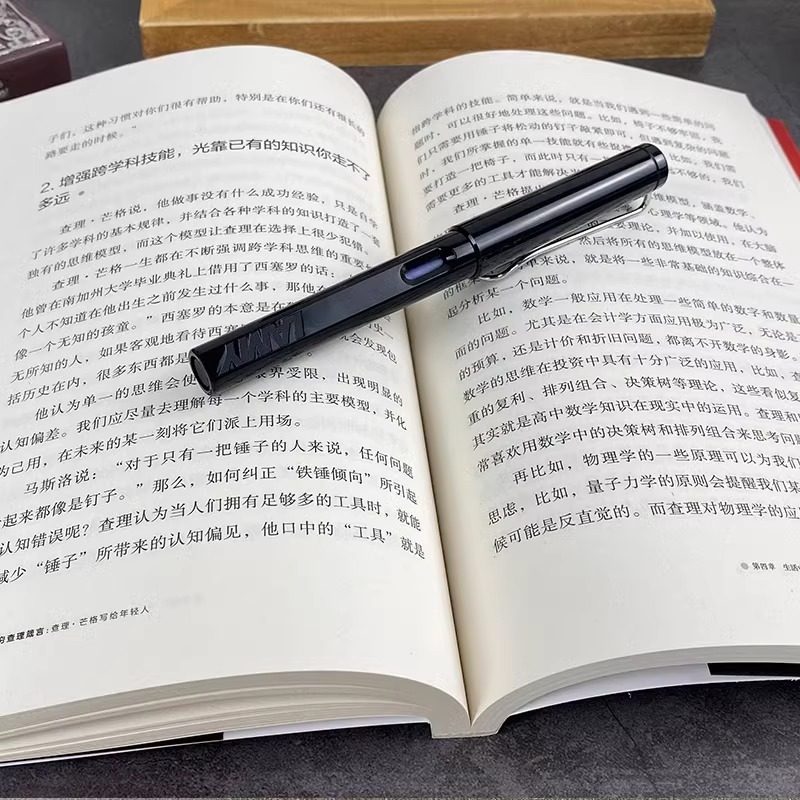 子们，这种习惯对你们很有帮助，特别是在你们还有很长的
路要走的时候。”
2. 增强跨学科技能，光靠已有的知识你走不了
多远
查理·芒格说，他做事没有什么成功经验，只是自学
了许多学科的基本规律，并结合各种学科的知识打造了一套
独有的思维模型，而这个模型让查理在选择上很少犯错。
查理·芒格一生都在不断强调跨学科思维的重要
他曾在南加州大学毕业典礼上借用了西塞罗的话：
个人不知道在他出生之前发生过什么事，那他在
像一个无知的孩童。”西塞罗的本意是在
无所知的人，如果客观地看待西塞
就会发现包
括历史在内，很多东西都是
他认为单一的思维会使
眼界受限，出现明显的
认知偏差。我们应尽量去理解每一个学科的主要模型，并化
为己用，在未来的某一刻将它们派上用场。
马斯洛说：“对于只有一把锤子的人来说，任何问题
起来都像是钉子。”那么，如何纠正“铁锤倾向”所引起
认知错误呢？查理认为当人们拥有足够多的工具时，就能
减少“锤子”所带来的认知偏见，他口中的“工具”就是
查理箴言：查理·芒格写给年轻人
LAMY
指跨学科的技能。简单来说，就是当我们遇到一些简单的问
题时，可以很好地处理这些问题。比如，椅子不够牢固，我
们只需要用锤子将松动的钉子敲紧即可，但遇到复杂的问题
时，我们所掌握的单一技能就有些捉
比如，我们需
要打造一把椅子，而此时只有一
不够的，我们
需要更多的工具才能解决
查理·芒格提
思维模型，涵盖数学、
心理学等领域。他认为
要理论，并加以使用，在大脑
然后将所有的思维模型放在一个整体
的框
单来说，就是将一些非常基础的知识综合在一
起分析某一个问题。
比如，数学一般应用在处理一些简单的数字和数量
而的问题。尤其是在会计学方面应用极为广泛，无论是
的预算，还是计价和折旧问题，都离不开数学的身影。
数学的思维在投资中具有十分广泛的应用，比如，查
重的复利、排列组合、决策树等理论，这些看似复
其实就是高中数学知识在现实中的运用。查理和
常喜欢用数学中的决策树和排列组合来思考问题
再比如，物理学的一些原理可以为我们
思虑，比如，量子力学的原则会提醒我们某
候可能是反直觉的。而查理对物理学的应
第四章 生活